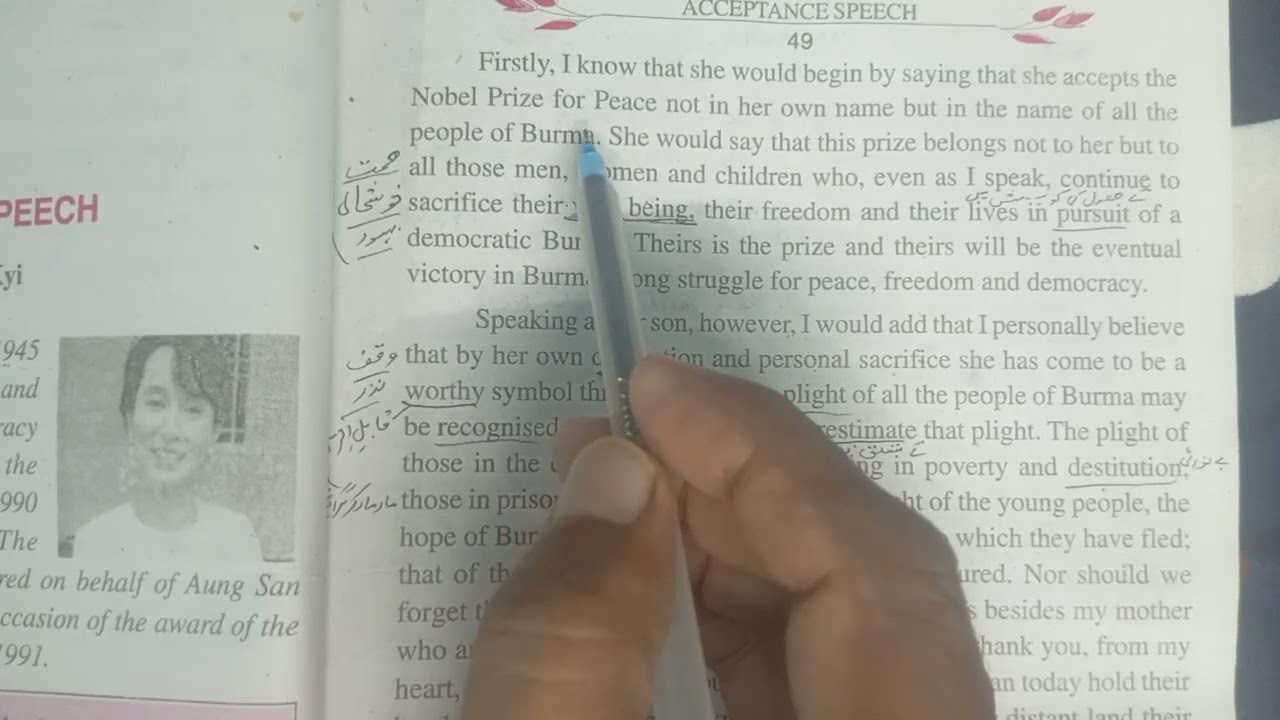 PEECH
yi
945
and
racy
the
990
The
red on behalf of Aung San
ccasion of the award of the
1991.
ACCEPTANCE SPEECH
49
Firstly, I know that she would begin by saying that she accepts the
Nobel Prize for Peace not in her own name but in the name of all the
people of Burma. She would say that this prize belongs not to her but to
ہمت all those men, women and children who, even as I speak, continue to
خوشحالی sacrifice their being, their freedom and their lives in pursuit of a
بہبود democratic Bur Theirs is the prize and theirs will be the eventual
victory in Burm ong struggle for peace, freedom and democracy.
Speaking a son, however, I would add that I personally believe
وقف that by her own tion and personal sacrifice she has come to be a
نذر worthy symbol th plight of all the people of Burma may
be recognised restimate that plight. The plight of
those in the ng in poverty and destitution,
those in priso ht of the young people, the
hope of Bur which they have fled;
that of th ured. Nor should we
forget t s besides my mother
who a hank you, from my
heart, an today hold their
distant land their